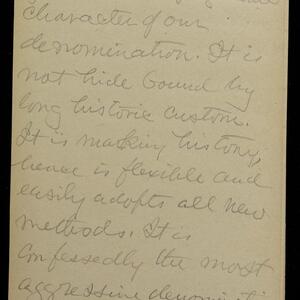 character of our
denomination. It is
not hide bound by
long historic custom.
It is making history,
hence is flexible and
easily adopts all new
methods. It is
confessedly the most
aggressive denominati